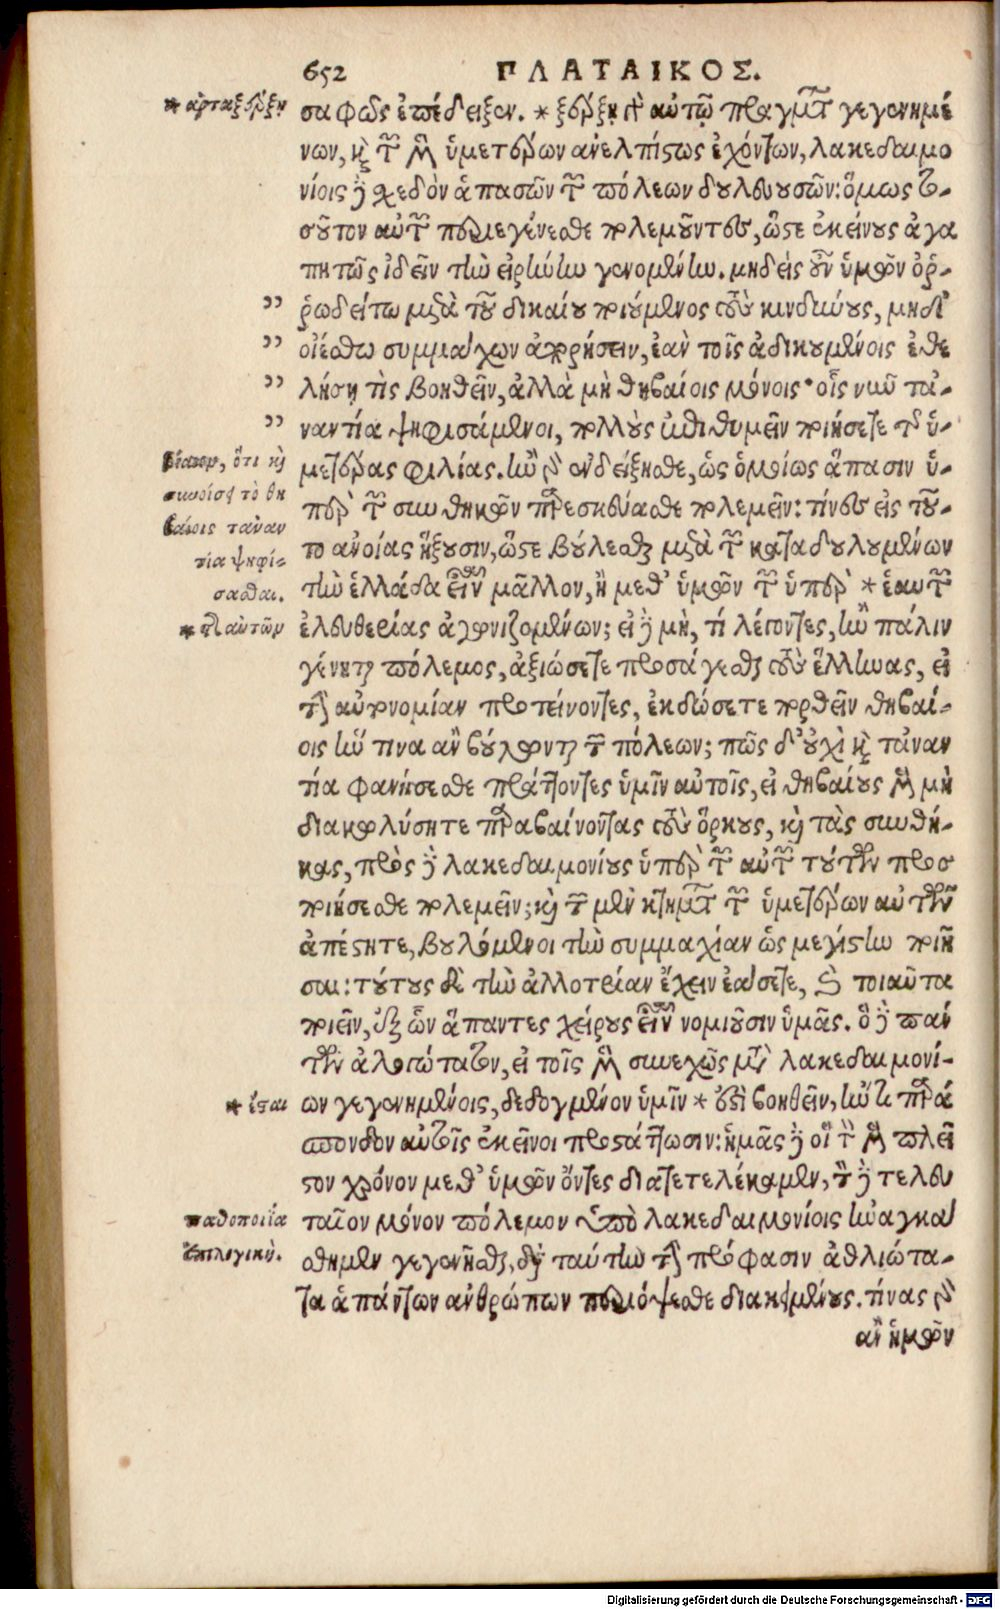 652 ΠΛΑΤΑΙΚΟΣ.
* ἀρταξέρξῃ
σαφῶς ἐπέδειξαν. * ξέρξῃ δὲ αὐτῷ πραγμάτων γεγενημέ
νων, καὶ τῶν μὲν ὑμετέρων ἀνελπίστως ἐχόντων, λακεδαιμο
νίοις δὲ σχεδὸν ἁπασῶν τῶν πόλεων δουλευουσῶν: ὅμως το-
σοῦτον αὐτῶν περιεγένεσθε πολεμοῦντες, ὥστε ἐκείνους ἀγα
πητῶς ἰδεῖν τὴν εἰρήνην γενομένην. μηδεὶς οὖν ὑμῶν ὀρ-
ῥωδείτω μετὰ τοῦ δικαίου ποιούμενος τοὺς κινδύνους, μηδὲ
οἰέσθω συμμάχων ἀπορήσειν, ἐὰν τοῖς ἀδικουμένοις ἐθε
λήσῃ τὶς βοηθεῖν, ἀλλὰ μὴ θηβαίοις μόνοις· οἷς νῦν τἀ-
ναντία ψηφισάμενοι, πολλοὺς ἐπιθυμεῖν ποιήσετε τῆς ὑ-
βέλτιον, ὅτι καὶ
συνοίσει τὸ θη
βαίοις τἀναν
τία ψηφί-
σασθαι.
μετέρας φιλίας. ἢν γὰρ ἐνδείξησθε, ὡς ὁμοίως ἅπασιν ὑ-
πὲρ τῶν συνθηκῶν παρεσκεύασθε πολεμεῖν: τίνες εἰς τοῦ-
το ἀνοίας ἥξουσιν, ὥστε βούλεσθαι μετὰ τῶν καταδουλουμένων
τὴν ἑλλάδα εἶναι μᾶλλον, ἢ μεθ' ὑμῶν τῶν ὑπὲρ * ἑαυτῶν
* τῆς αὐτῶν
ἐλευθερίας ἀγωνιζομένων; εἰ δὲ μὴ, τί λέγοντες, ἢν πάλιν
γένηται πόλεμος, ἀξιώσετε προσάγεσθαι τοὺς ἕλληνας, εἰ
τὴν αὐτονομίαν προτείνοντες, ἐκδώσετε πορθεῖν θηβαί-
οις ἥν τινα ἂν βούλωνται τῶν πόλεων; πῶς δ' οὐχὶ καὶ τἀναν
τία φανήσεσθε πράττοντες ὑμῖν αὐτοῖς, εἰ θηβαίους μὲν μὴ
διακωλύσητε παραβαίνοντας τοὺς ὅρκους, καὶ τὰς συνθή-
κας, πρὸς δὲ λακεδαιμονίους ὑπὲρ τῶν αὐτῶν τούτων προσ
ποιήσεσθε πολεμεῖν; καὶ τῶν μὲν κτημάτων τῶν ὑμετέρων αὐτῶν
ἀπέστητε, βουλόμενοι τὴν συμμαχίαν ὡς μεγίστην ποιῆ
σαι: τούτους δὲ τὴν ἀλλοτρίαν ἔχειν ἐάσετε, καὶ τοιαῦτα
ποιεῖν, ἐξ ὧν ἅπαντες χείρους εἶναι νομιοῦσιν ὑμᾶς. ὃ δὲ πάν
των ἀλογώτατον, εἰ τοῖς μὲν συνεχῶς μετὰ λακεδαιμονί-
ων γεγενημένοις, δεδογμένον ὑμῖν * ἐστὶ βοηθεῖν, ἤν τι παρά
* ἔσται
σπονδον αὐτοῖς ἐκεῖνοι προστάττωσιν: ἡμᾶς δὲ οἳ τὸν μὲν πλεῖ
στον χρόνον μεθ' ὑμῶν ὄντες διατετελέκαμεν, τὸν δὲ τελευ
παθοποιΐα
ἐπιλογική.
ταῖον μόνον πόλεμον ὑπὸ λακεδαιμονίοις ἠναγκά
σθημεν γεγενῆσθαι, διὰ ταύτην τὴν πρόφασιν ἀθλιώτα-
τα ἁπάντων ἀνθρώπων περιόψεσθε διακειμένους. τίνας γὰρ
ἂν ἡμῶν
Digitalisierung gefördert durch die Deutsche Forschungsgemeinschaft - DFG